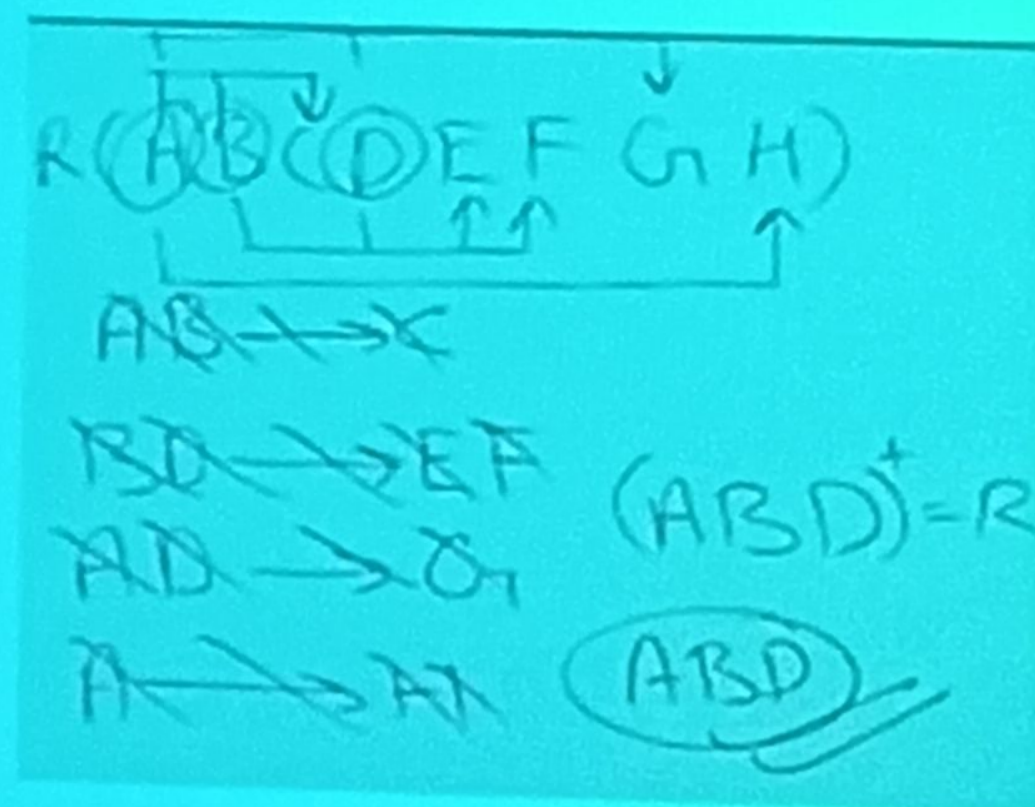 R(ABCDEF GH)
AB→C
BD→EF
AD→G
(ABD)⁺=R
A→H
ABD